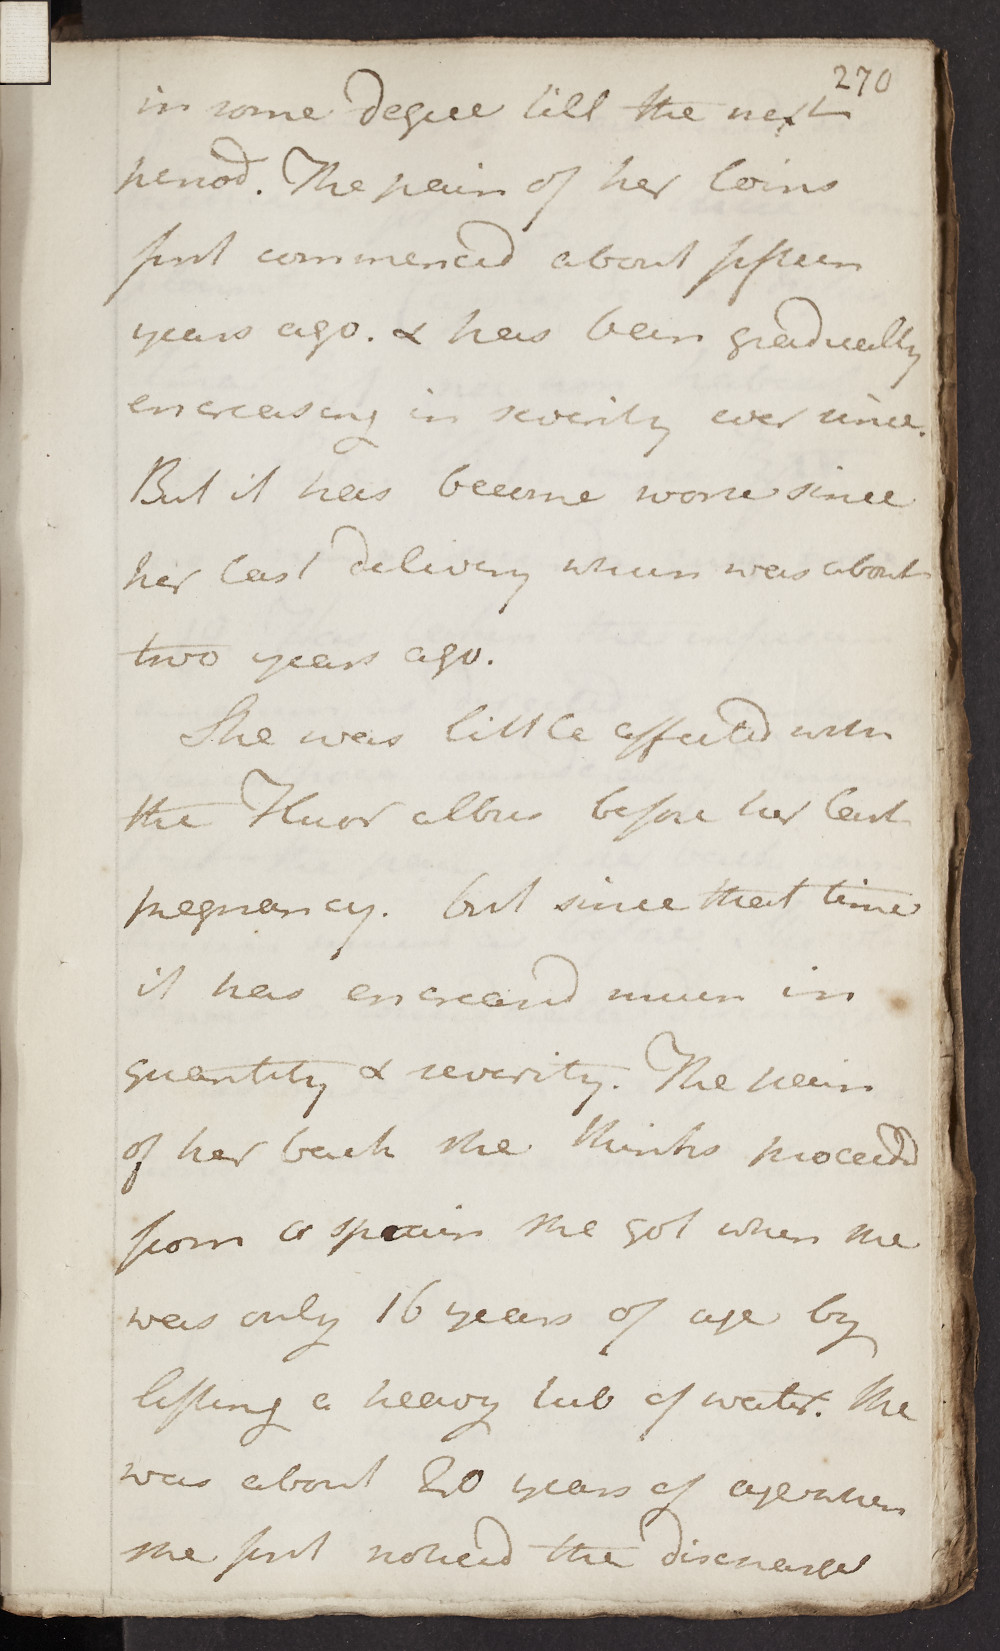 270
in some degree till the next
period. The pain of her loins
first commenced about fifteen
years ago. & has been gradually
encreasing in severity ever since.
But it has become worse since
her last delivery which was about
two years ago.
She was little affected with
the Fluor albus before her last
pregnancy. but since that time
it has encreased much in
quantity & severity. The pain
of her back she thinks proceeded
from a sprain she got when she
was only 16 years of age by
lifting a heavy tub of water. She
was about 20 years of age when
she first noticed the discharge